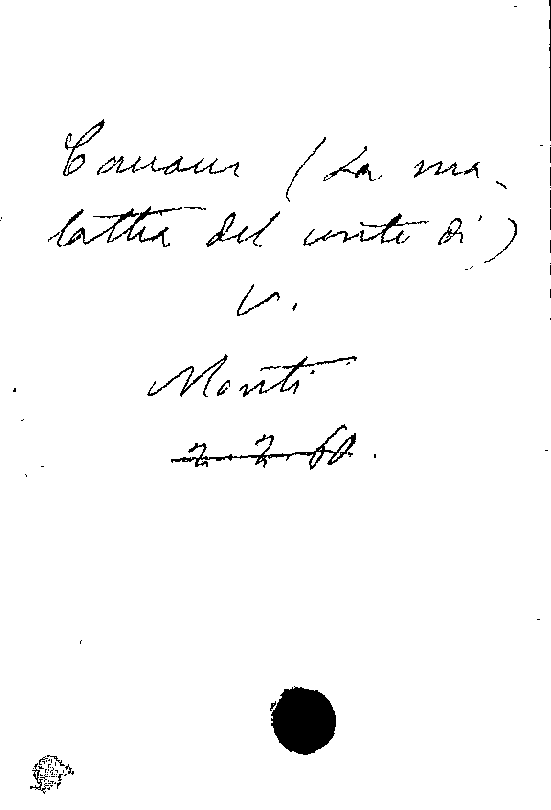 Cavour (La ma-
lattia del conte di)
V.
Monti
2. 2. 60.